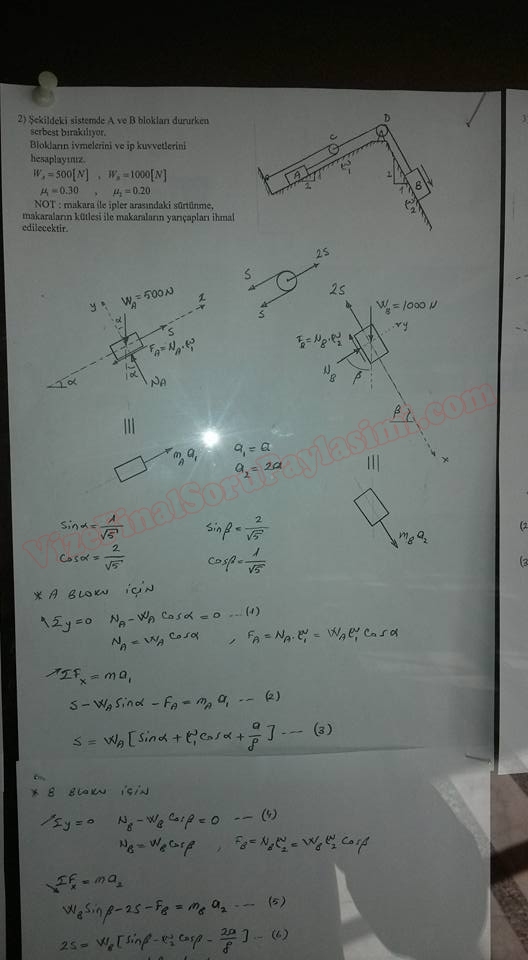 2) Şekildeki sistemde A ve B blokları dururken
serbest bırakılıyor.
Blokların ivmelerini ve ip kuvvetlerini
hesaplayınız.
W_A = 500[N] , W_B = 1000[N]
μ₁ = 0.30 , μ₂ = 0.20
NOT : makara ile ipler arasındaki sürtünme,
makaraların kütlesi ile makaraların yarıçapları ihmal
edilecektir.
A
2
1
C
μ₁
D
2
1
B
μ₂
y
W_A = 500N
α
x
S
F_A = N_A·μ₁
α
N_A
α
S
S
2S
2S
W_B = 1000N
y
F_B = N_B·μ₂
N_B
β
β
x
m_A a₁
a₁ = a
a₂ = 2a
m_B a₂
Sinα = 1/√5
Sinβ = 2/√5
Cosα = 2/√5
Cosβ = 1/√5
* A BLOKU İÇİN
Σy=0 N_A - W_A Cosα = 0 --- (1)
N_A = W_A Cosα , F_A = N_A·μ₁ = W_A μ₁ Cosα
ΣF_x = m a₁
S - W_A Sinα - F_A = m_A a₁ --- (2)
S = W_A [Sinα + μ₁ Cosα + a/g] --- (3)
* B BLOKU İÇİN
Σy=0 N_B - W_B Cosβ = 0 --- (4)
N_B = W_B Cosβ , F_B = N_B μ₂ = W_B μ₂ Cosβ
ΣF_x = m a₂
W_B Sinβ - 2S - F_B = m_B a₂ --- (5)
2S = W_B [Sinβ - μ₂ Cosβ - 2a/g] --- (6)
VizeFinalSoruPaylasimi.com